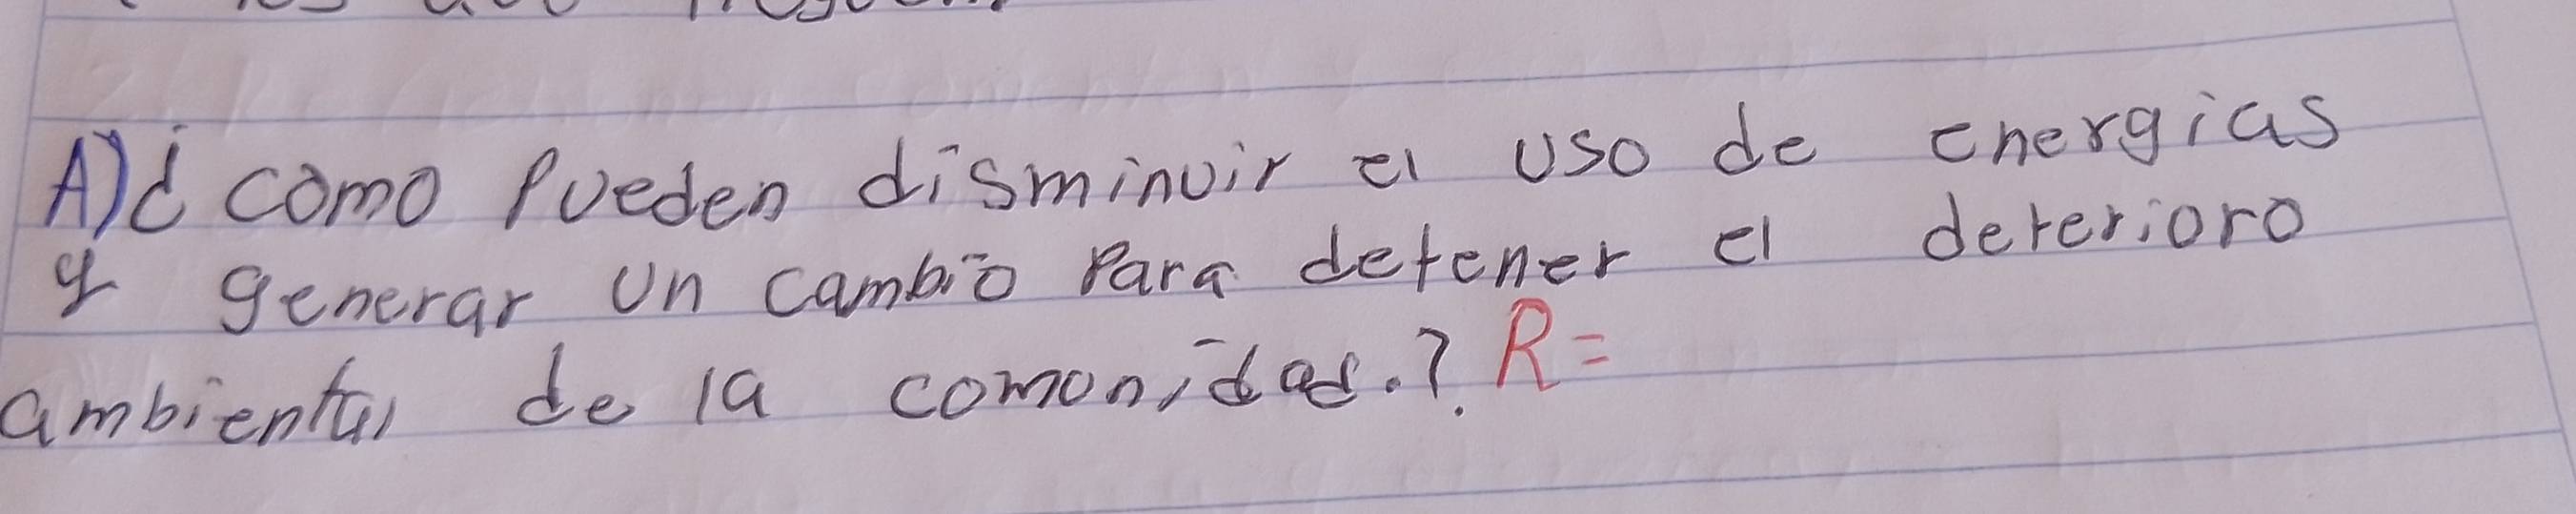 A) ¿ como Pueden disminuir el uso de energias
y generar un cambio Para detener el deterioro
ambiental de la comonidad.? R=